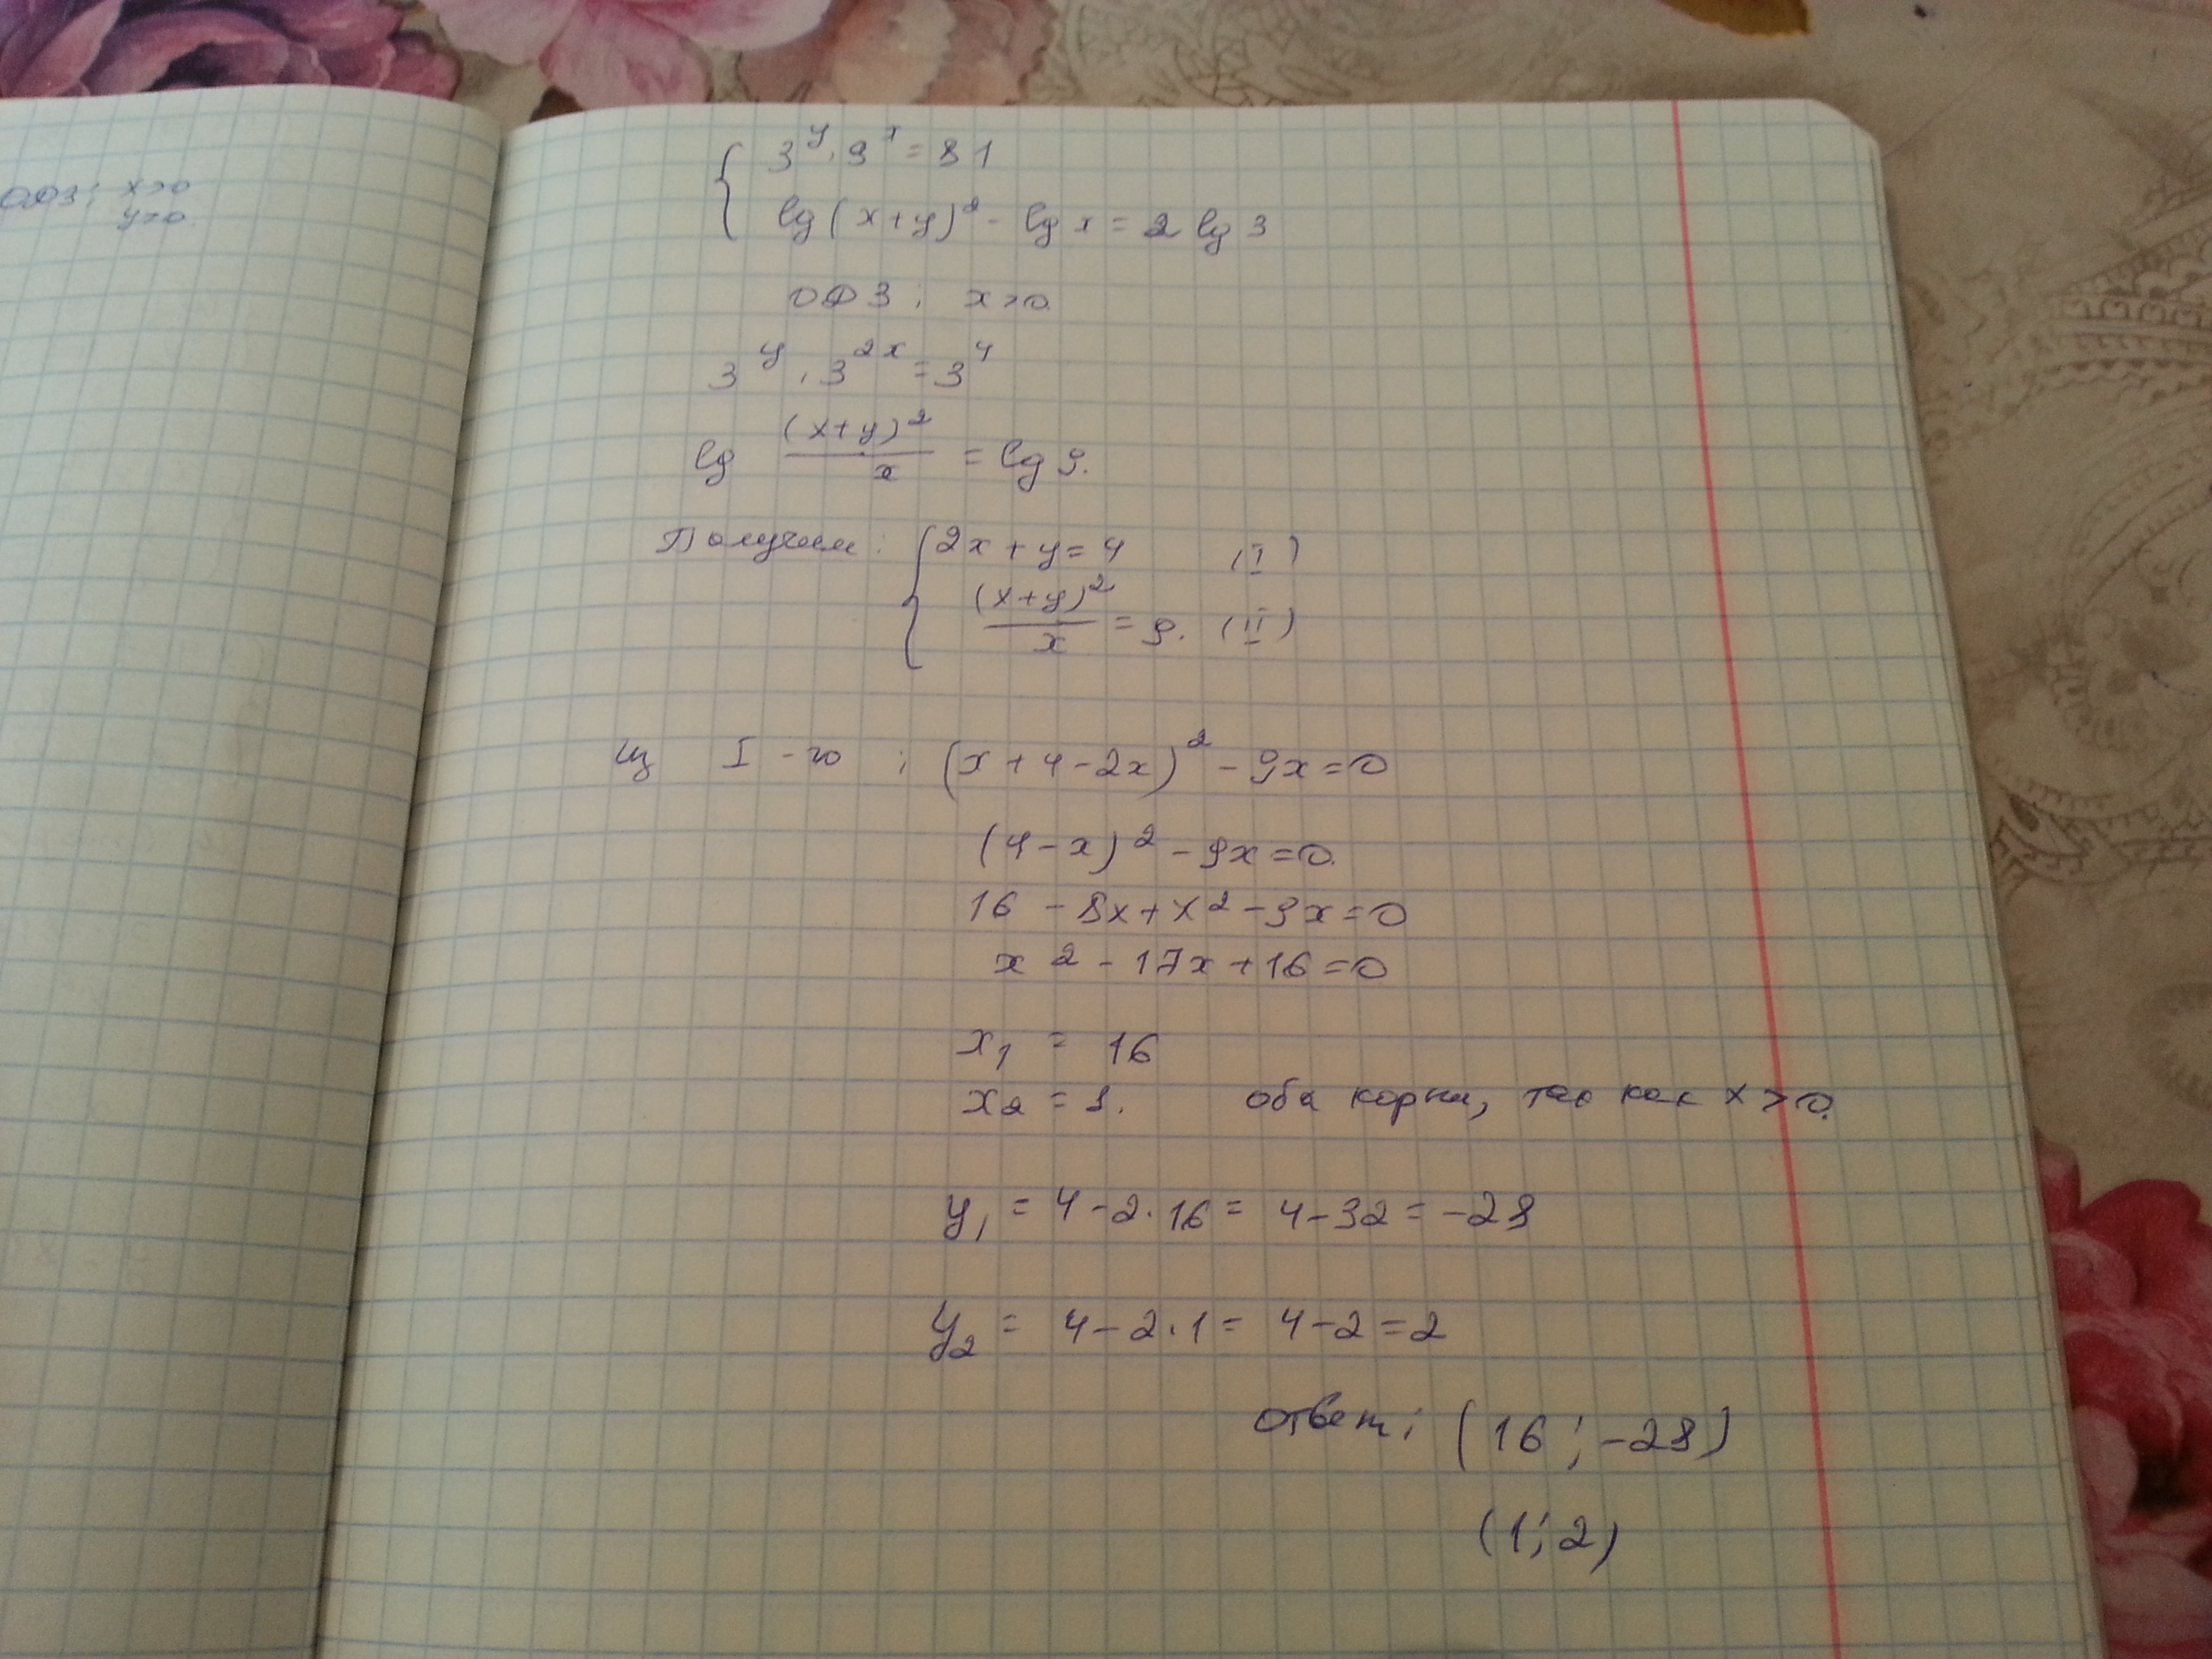 ОДЗ: x>0
y>0
3^y · 9^x = 81
lg(x+y)^2 - lg x = 2 lg 3
ОДЗ: x>0
3^y · 3^2x = 3^4
lg (x+y)^2 / x = lg 9.
Получим: 2x+y=4 (I)
(x+y)^2 / x = 9. (II)
Из I-го: (x+4-2x)^2 - 9x=0
(4-x)^2 - 9x=0.
16 - 8x+x^2-9x=0
x^2 - 17x+16=0
x1 = 16
x2 = 1. оба корни, так как x>0.
y1 = 4-2·16 = 4-32 = -28
y2 = 4-2·1 = 4-2=2
ответ: (16; -28)
(1; 2)